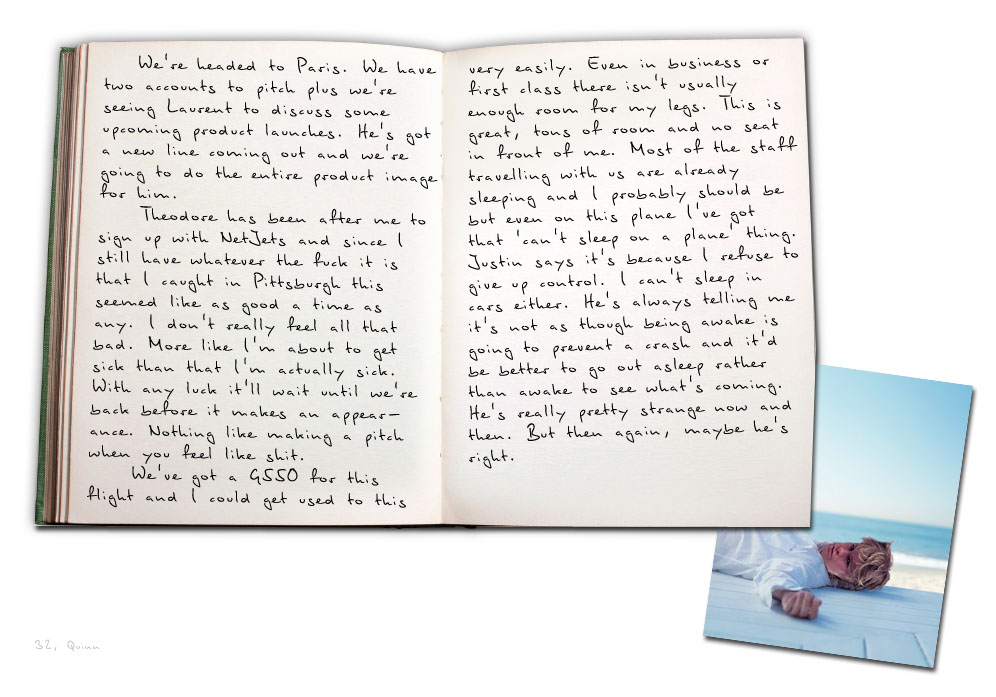 We're headed to Paris. We have
two accounts to pitch plus we're
seeing Laurent to discuss some
upcoming product launches. He's got
a new line coming out and we're
going to do the entire product image
for him.
Theodore has been after me to
sign up with NetJets and since I
still have whatever the fuck it is
that I caught in Pittsburgh this
seemed like as good a time as
any. I don't really feel all that
bad. More like I'm about to get
sick than that I'm actually sick.
With any luck it'll wait until we're
back before it makes an appear-
ance. Nothing like making a pitch
when you feel like shit.
We've got a G550 for this
flight and I could get used to this
very easily. Even in business or
first class there isn't usually
enough room for my legs. This is
great, tons of room and no seat
in front of me. Most of the staff
travelling with us are already
sleeping and I probably should be
but even on this plane I've got
that 'can't sleep on a plane' thing.
Justin says it's because I refuse to
give up control. I can't sleep in
cars either. He's always telling me
it's not as though being awake is
going to prevent a crash and it'd
be better to go out asleep rather
than awake to see what's coming.
He's really pretty strange now and
then. But then again, maybe he's
right.
32, Quinn